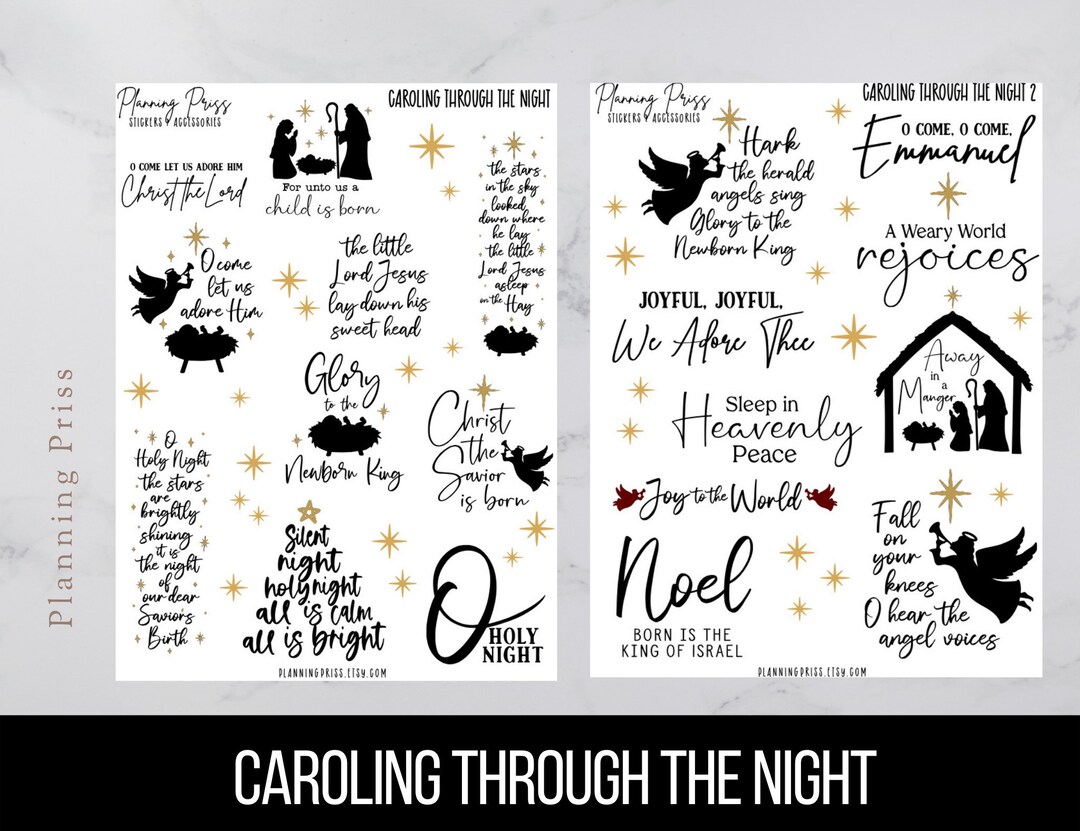 Planning Priss
Planning Priss
STICKERS & ACCESSORIES
CAROLING THROUGH THE NIGHT
O COME LET US ADORE HIM
Christ the Lord
For unto us a
child is born
the stars
in the sky
looked
down where
he lay
the little
Lord Jesus
asleep
on the Hay
O come
let us
adore Him
the little
Lord Jesus
lay down his
sweet head
Glory
to the
Newborn King
Christ
the
Savior
is born
O
Holy Night
the stars
are
brightly
shining
it is
the night
of
our dear
Savior's
Birth
Silent
night
holy night
all is calm
all is bright
O
HOLY
NIGHT
PLANNINGPRISS.ETSY.COM
Planning Priss
STICKERS & ACCESSORIES
CAROLING THROUGH THE NIGHT 2
Hark
the herald
angels sing
Glory to the
Newborn King
O COME, O COME,
Emmanuel
A Weary World
rejoices
JOYFUL, JOYFUL,
We Adore Thee
Away
in a
Manger
Sleep in
Heavenly
Peace
Joy to the World
Noel
BORN IS THE
KING OF ISRAEL
Fall
on
your
knees
O hear the
angel voices
PLANNINGPRISS.ETSY.COM
CAROLING THROUGH THE NIGHT